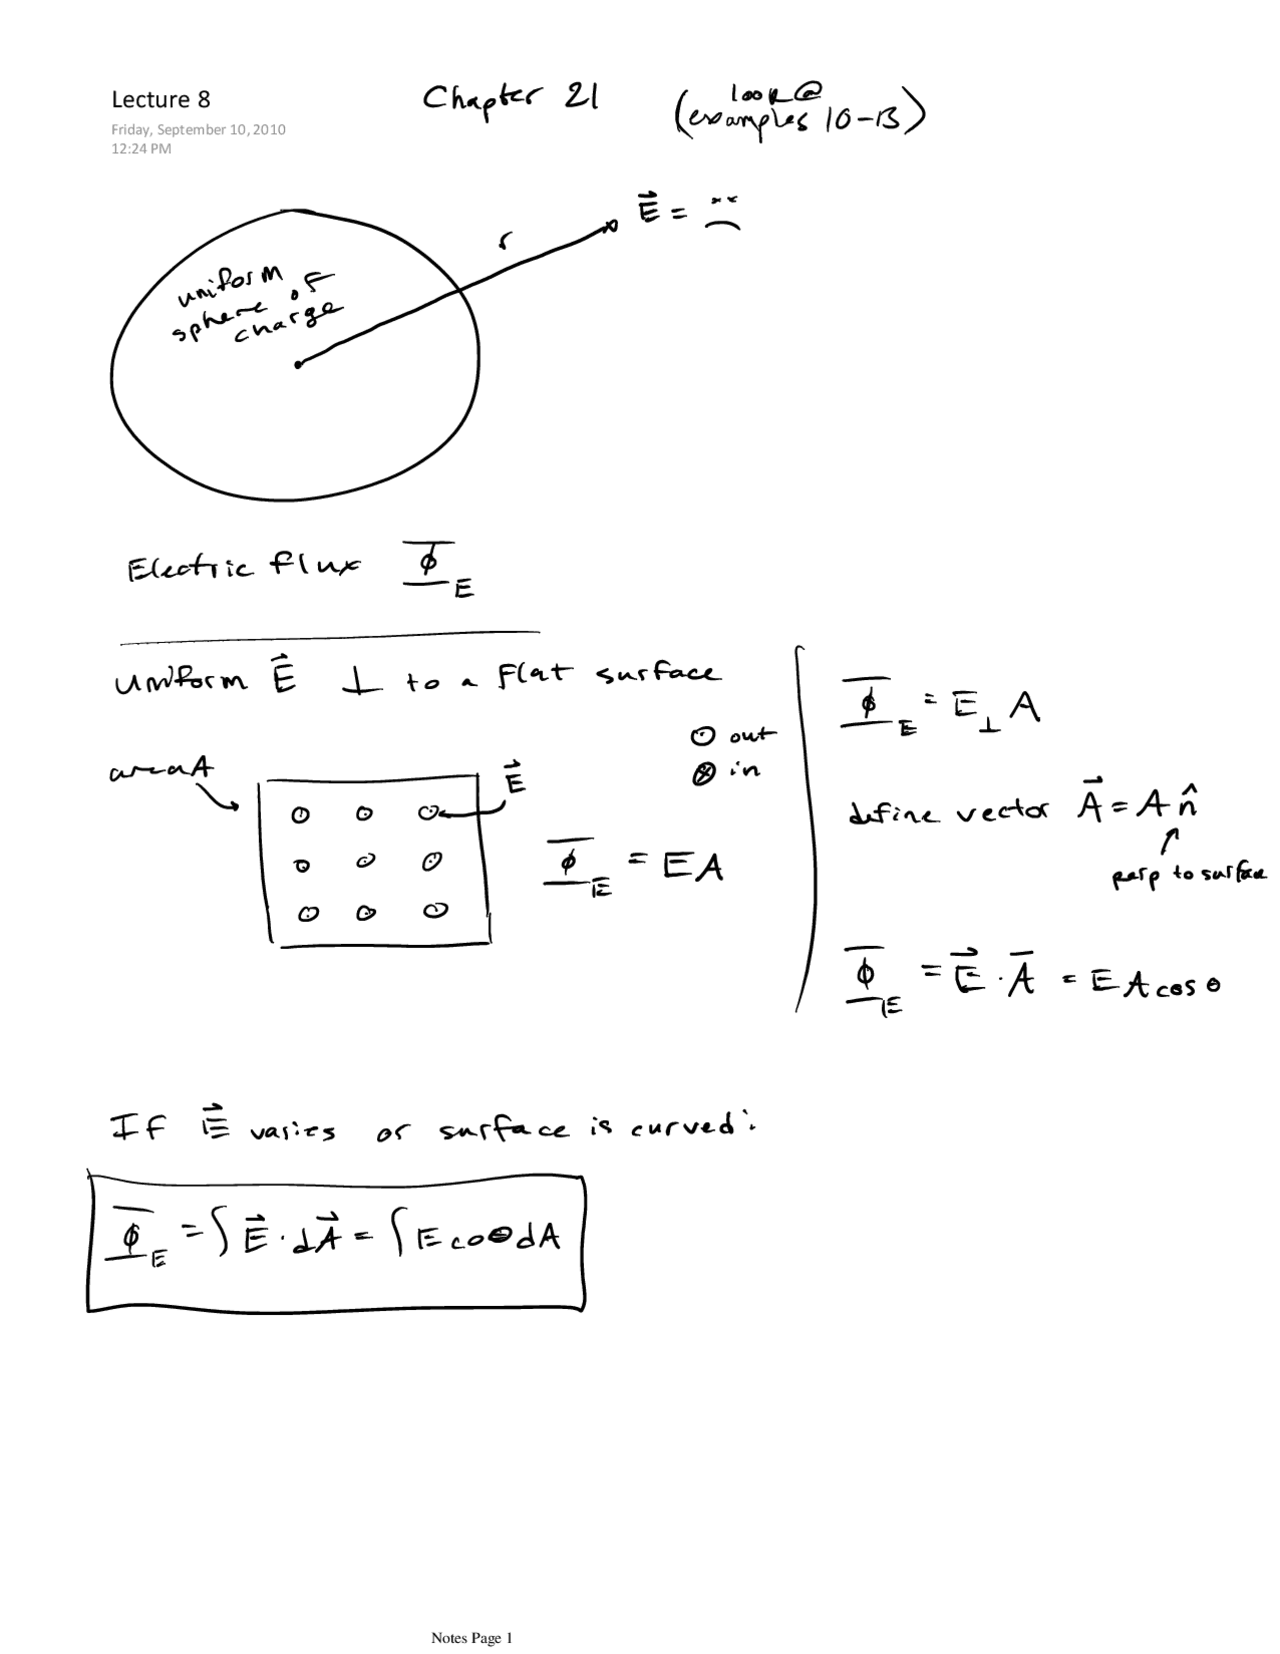 Lecture 8
Friday, September 10, 2010
12:24 PM
Chapter 21
(look@
examples 10-13)
uniform
sphere of
charge
r
E⃗ =
Electric flux Φ_E
uniform E⃗ ⊥ to a flat surface
⊙ out
⊗ in
area A
E⃗
Φ_E = EA
Φ_E = E_⊥ A
define vector A⃗ = A n̂
perp to surface
Φ_E = E⃗ · A̅ = E A cos θ
If E⃗ varies or surface is curved:
Φ_E = ∫ E⃗ · dA⃗ = ∫ E coθ dA
Notes Page 1